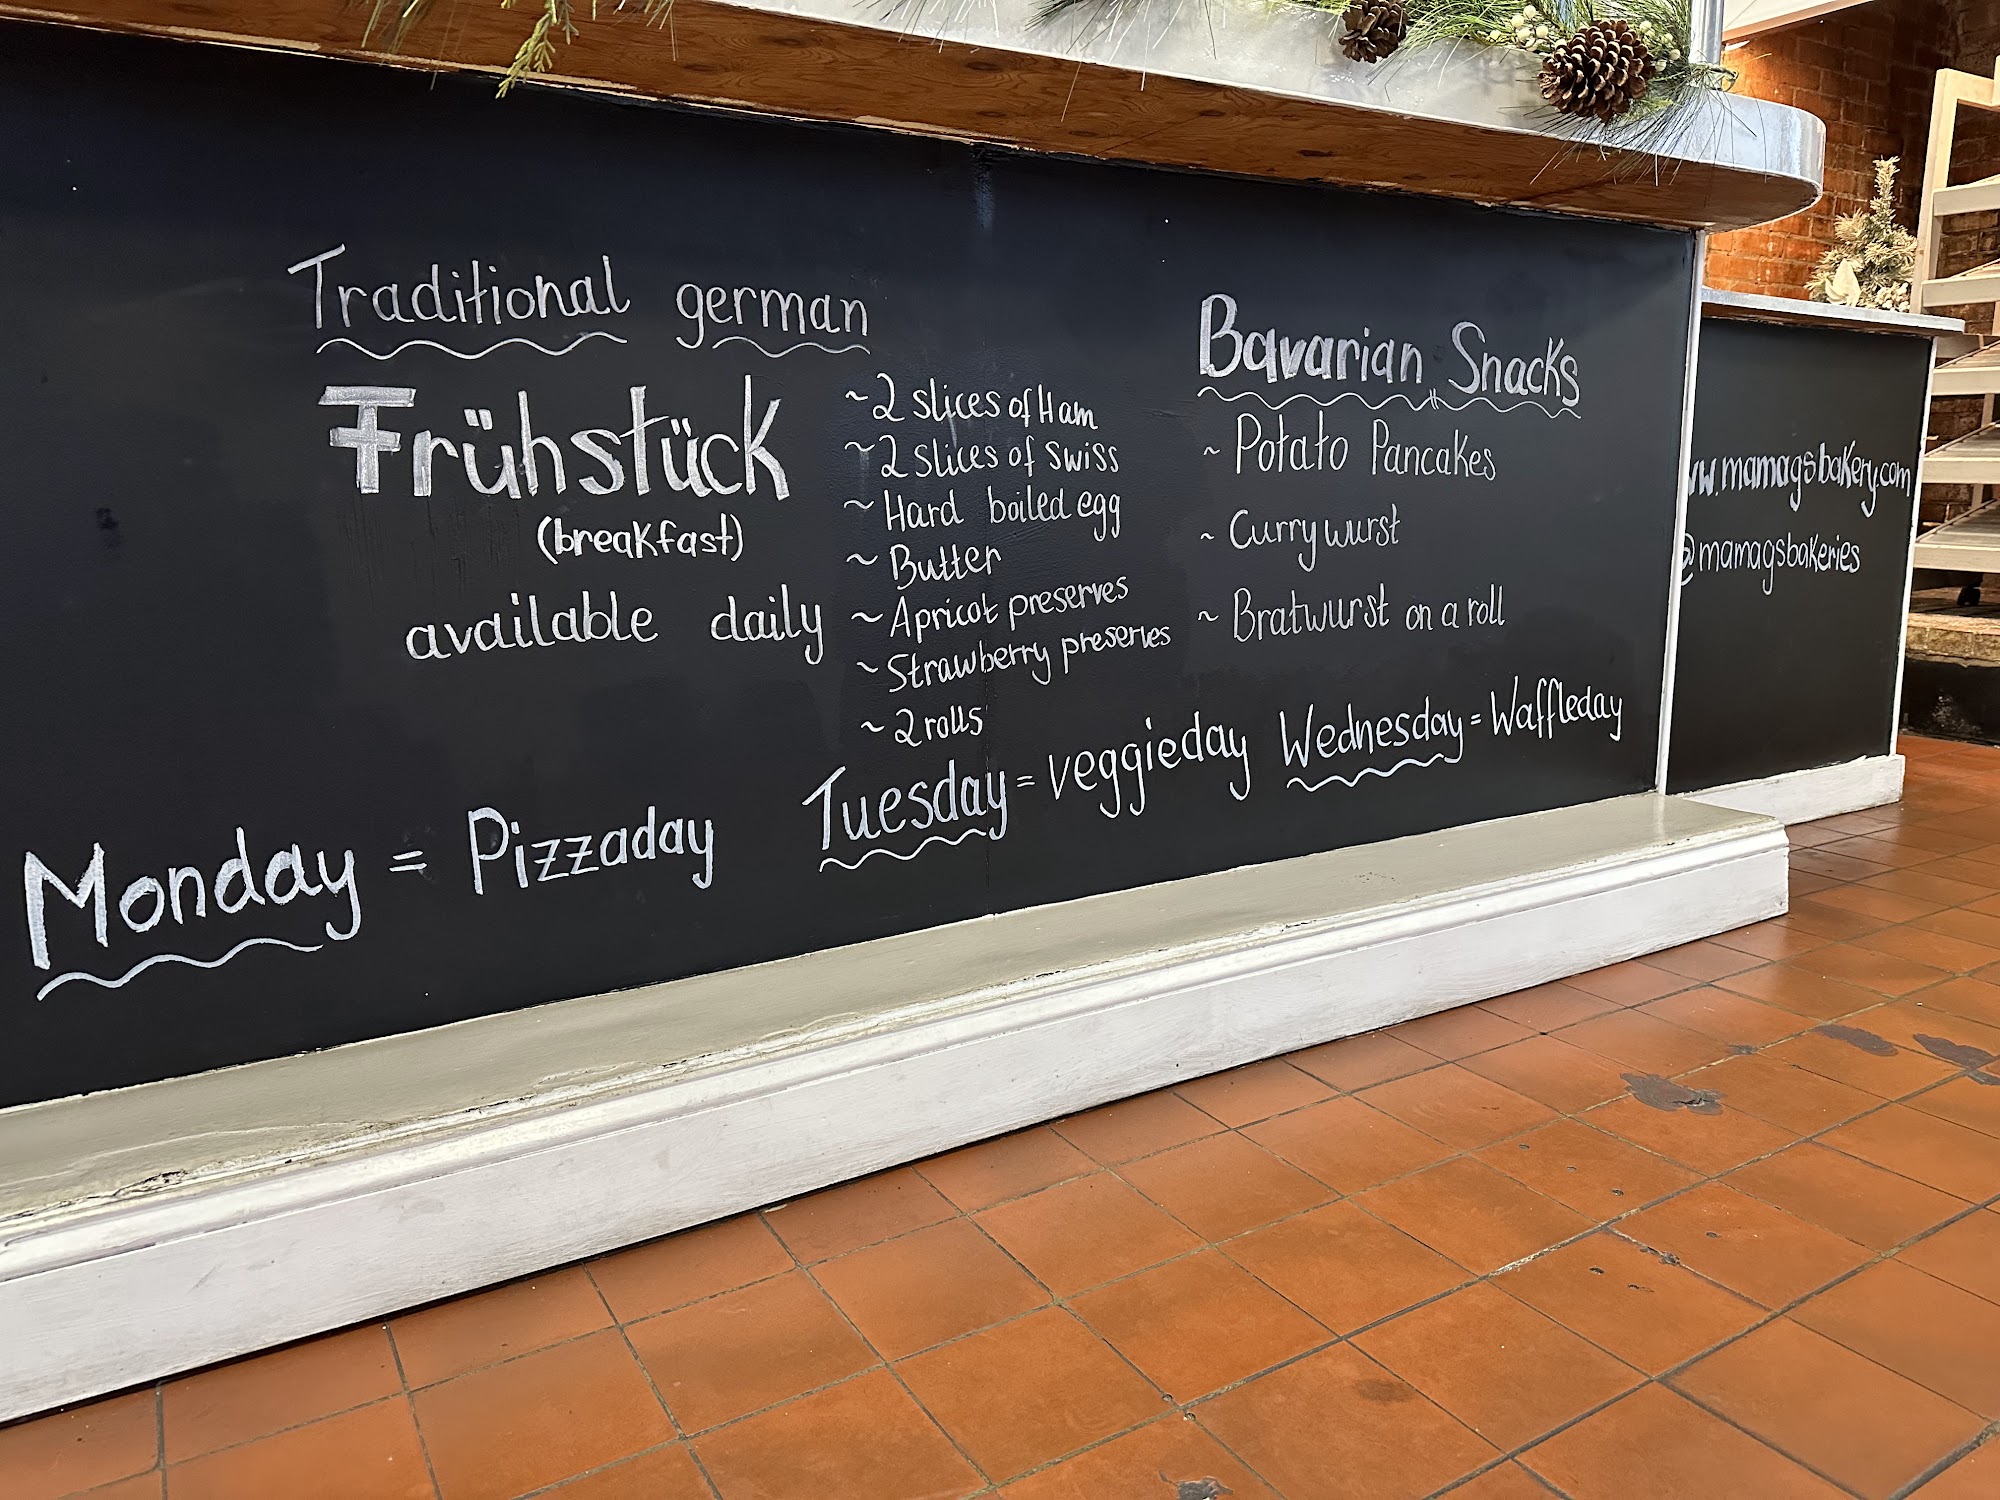 Traditional german
Frühstück
(breakfast)
available daily
~2 slices of Ham
~2 slices of swiss
~Hard boiled egg
~Butter
~Apricot preserves
~Strawberry preserves
~2 rolls
Bavarian Snacks
~ Potato Pancakes
~ Curry wurst
~ Bratwurst on a roll
Monday = Pizzaday
Tuesday = veggieday
Wednesday = Waffleday
ww.mamagsbakery.com
@mamagsbakeries